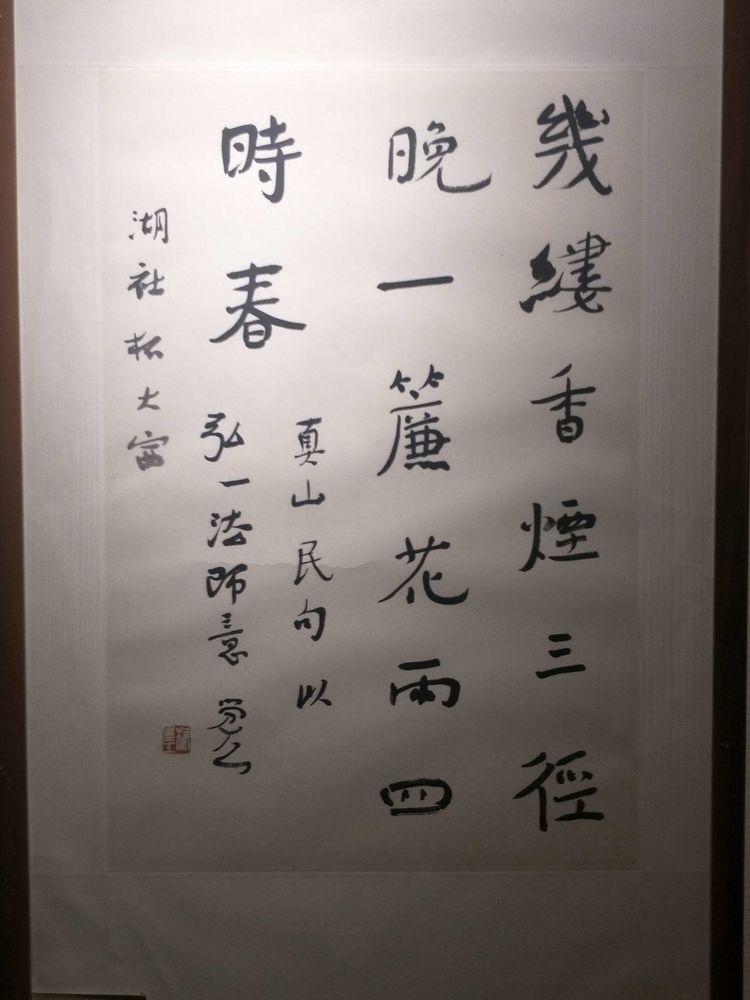 幾縷香煙三徑
晚一簾花雨四
時春
真山民句以
弘一法師意
湖社
大富